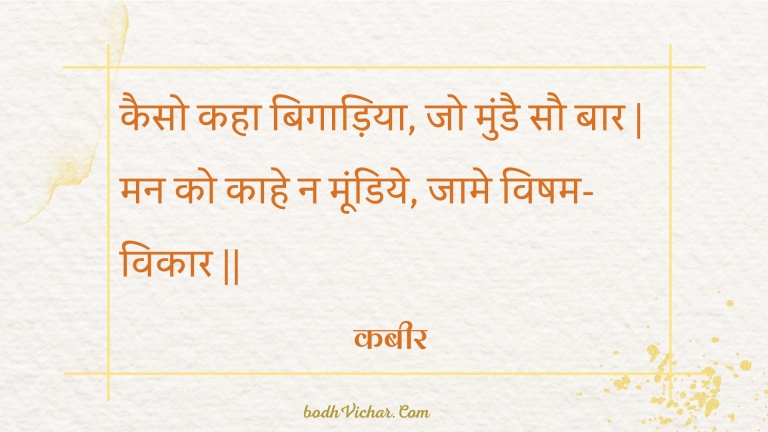 कैसो कहा बिगाड़िया, जो मुंडै सौ बार |
मन को काहे न मूंडिये, जामे विषम-
विकार ||
कबीर
bodhVichar.Com